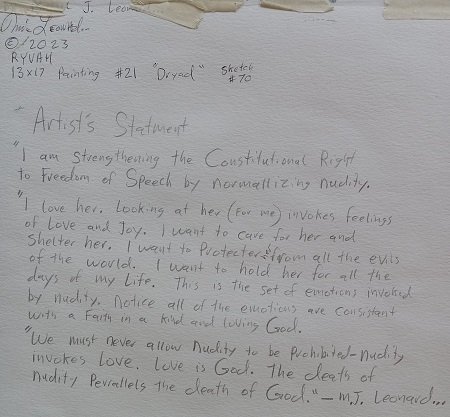 J. Leon
Leonard
© 2023
RYVAH
13x17 Painting #21 "Dryad" Sketch
#70
"Artist's Statment
"I am strengthening the Constitutional Right
to Freedom of Speech by normallizing nudity.
"I love her. Looking at her (for me) invokes feelings
of Love and Joy. I want to care for her and
shelter her. I want to Protecter from all the evils
of the world. I want to hold her for all the
days of my Life. This is the set of emotions invoked
by nudity. Notice all of the emotions are consistant
with a Faith in a kind and loving God.
"We must never allow Nudity to be Prohibited-nudity
invokes Love. Love is God. The death of
nudity Perrallels the death of God." - M.J. Leonard...